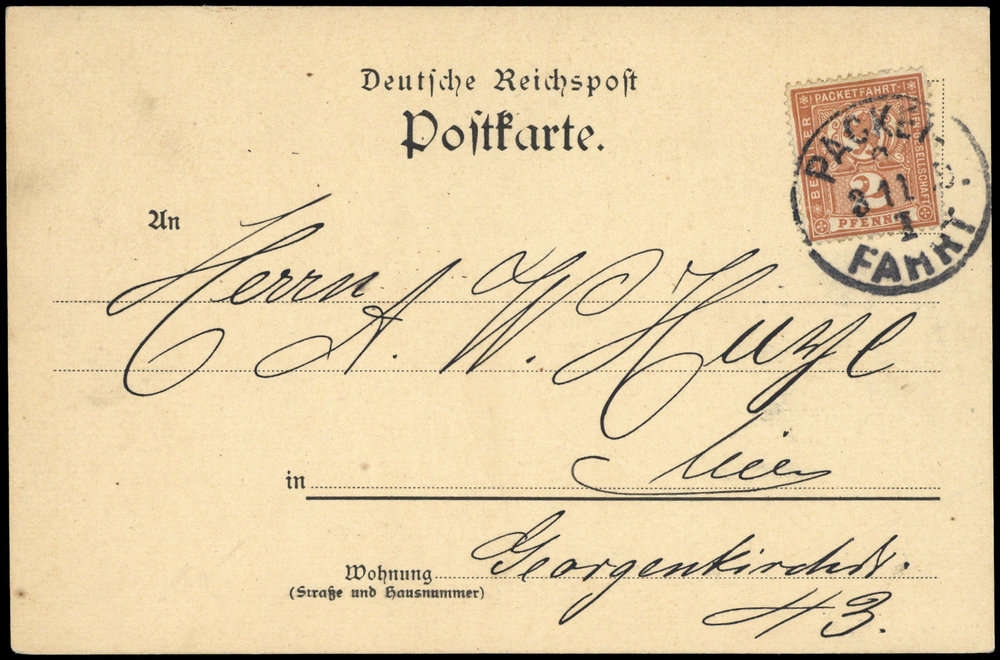 Deutsche Reichspost
Postkarte.
BERLINER PACKETFAHRT GESELLSCHAFT
2
PFENNIG
PACKET
3 11
I
FAHRT
An
Herrn
A. W. Huyl
in hier
Wohnung Georgenkirchstr.
(Straße und Hausnummer)
43.